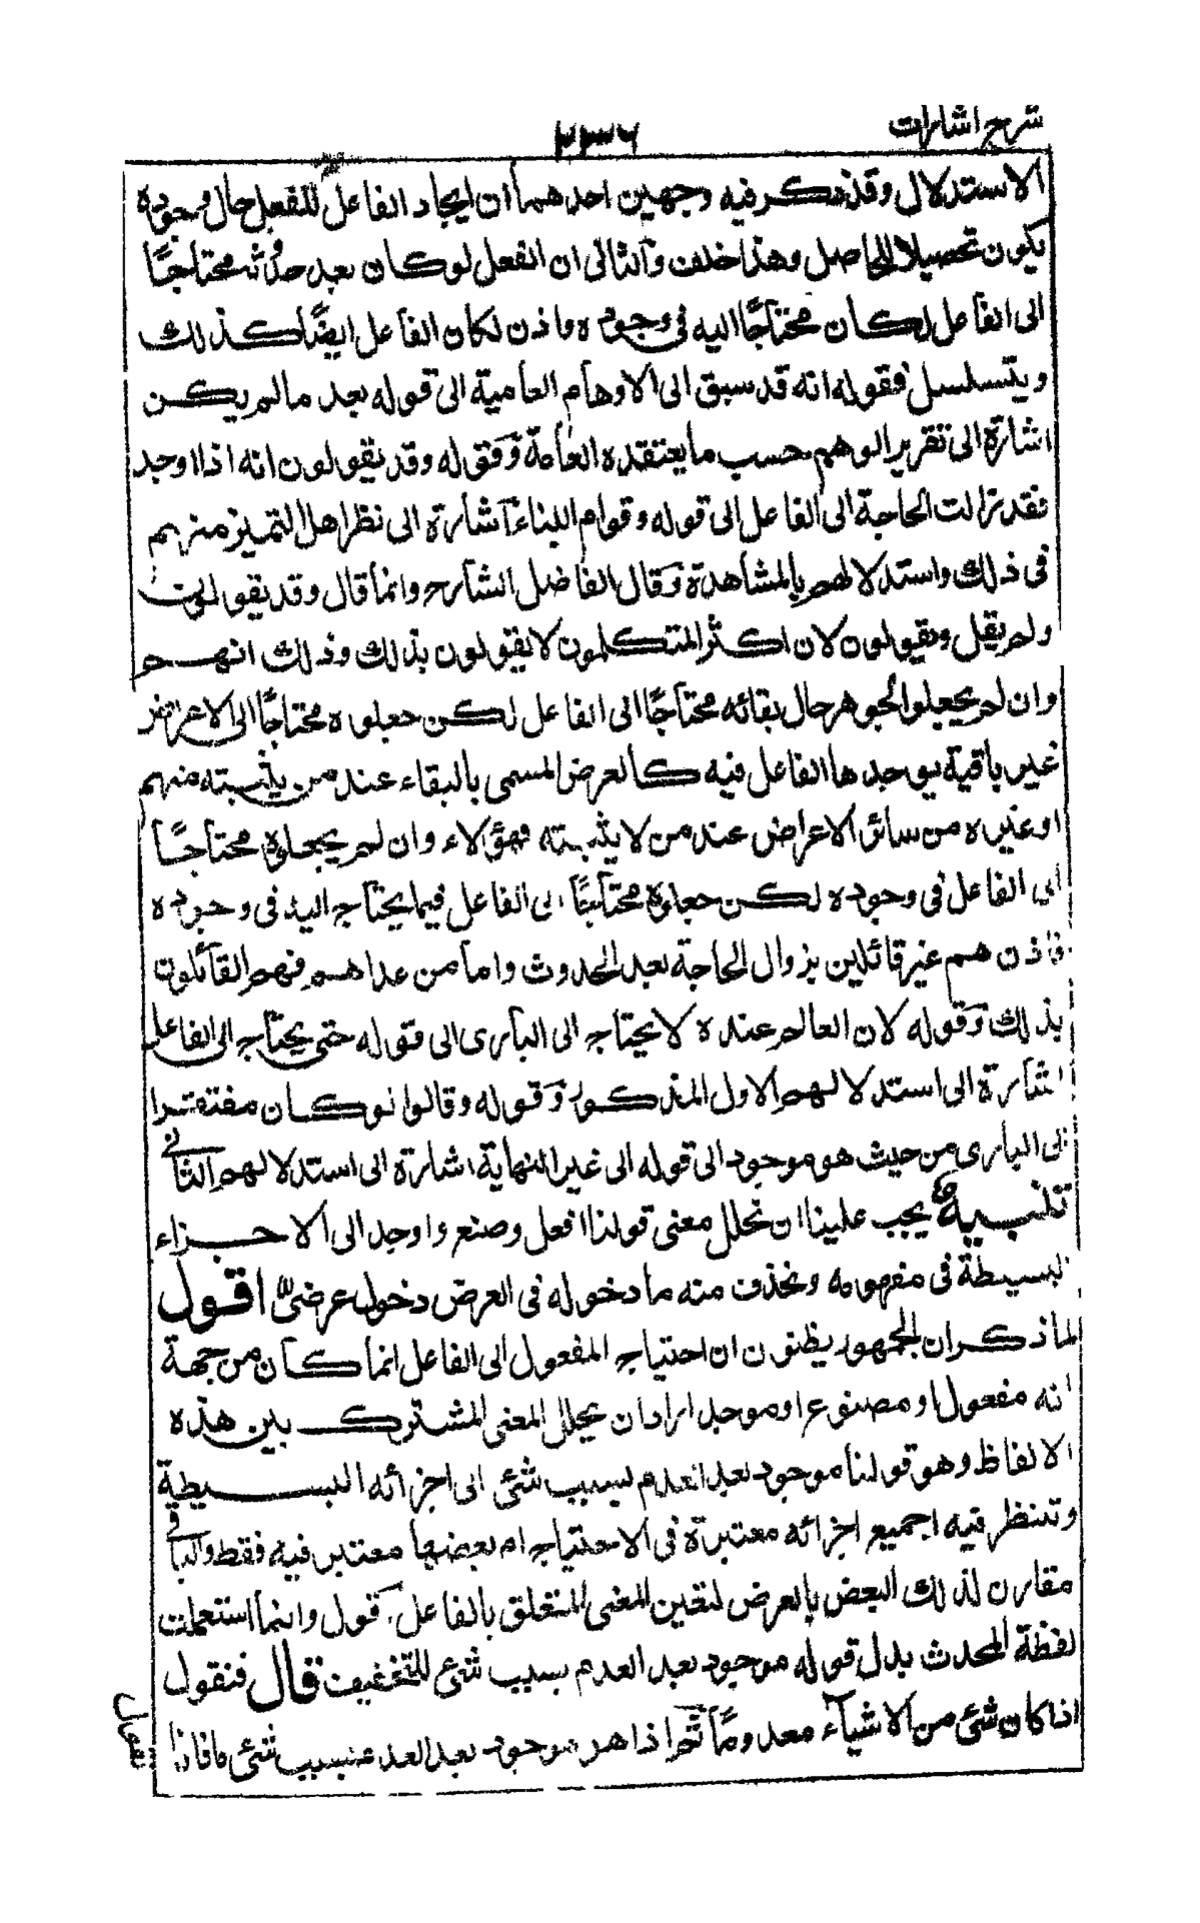 شرح اشارات
٢٣٦
الاستدلال وقد ذكر فيه وجهين احدهما ان ايجاد الفاعل للفعل حال وجوده
يكون تحصيلا للحاصل وهذا خلف والثانى ان الفعل لو كان بعد حدوثه محتاجًا
الى الفاعل لكان محتاجًا اليه فى وجوده واذن لكان الفاعل ايضًا كذلك
ويتسلسل فقوله انه قد سبق الى الاوهام العامية الى قوله بعد مالم يكن
اشارة الى تقرير الوهم حسب ما يعتقده العامة وقوله وقد يقولون انه اذا اوجد
فقد زالت الحاجة الى الفاعل الى قوله وقوام البناء اشارة الى نظر اهل التميز منهم
فى ذلك واستدلالهم بالمشاهدة وقال الفاضل الشارح وانما قال وقد يقولون
ولم يقل ويقولون لان اكثر المتكلمون لا يقولون بذلك وذلك انهم
وان لم يجعلوا الجوهر حال بقائه محتاجًا الى الفاعل لكن جعلوه محتاجًا الى الاعراض
غير باقية يوجدها الفاعل فيه كالعرض المسمى بالبقاء عند من يثبته منهم
او غيره من سائر الاعراض عند من لا يثبته فهؤلاء وان لم يجعلوه محتاجًا
الى الفاعل فى وجوده لكن جعلوه محتاجًا الى الفاعل فيما يحتاج اليه فى وجوده
فاذن هم غير قائلين بزوال الحاجة بعد الحدوث واما من عداهم فهم القائلون
بذلك وقوله لان العالم عنده لا يحتاج الى البارى الى قوله حتى يحتاج الى الفاعل
اشارة الى استدلالهم الاول المذكور وقوله وقالوا لو كان مفتقرا
الى البارى من حيث هو موجود الى قوله الى غير النهاية اشارة الى استدلالهم الثانى
تنبيه يجب علينا ان نحلل معنى قولنا فعل وصنع واوجد الى الاجزاء
البسيطة فى مفهومه ونحذف منه ما دخوله فى العرض دخول عرضىّ اقول
لما ذكر ان الجمهور يظنون ان احتياج المفعول الى الفاعل انما كان من جهة
انه مفعول او مصنوع او موجد اراد ان يحلل المعنى المشترك بين هذه
الالفاظ وهو قولنا موجود بعد العدم بسبب شئ الى اجزائه البسيطة
وتنظر فيه اجميع اجزائه معتبرة فى الاحتياج ام بعضها معتبر فيه فقط والباقى
مقارن لذلك البعض بالعرض لتعين المعنى المتعلق بالفاعل قول وانما استعملت
لفظة المحدث بدل قوله موجود بعد العدم بسبب شئ للتخفيف قال فنقول
اذا كان شئ من الاشياء معدومًا ثم اذا هو موجود بعد العدم بسبب شئ ما فانا
نقال